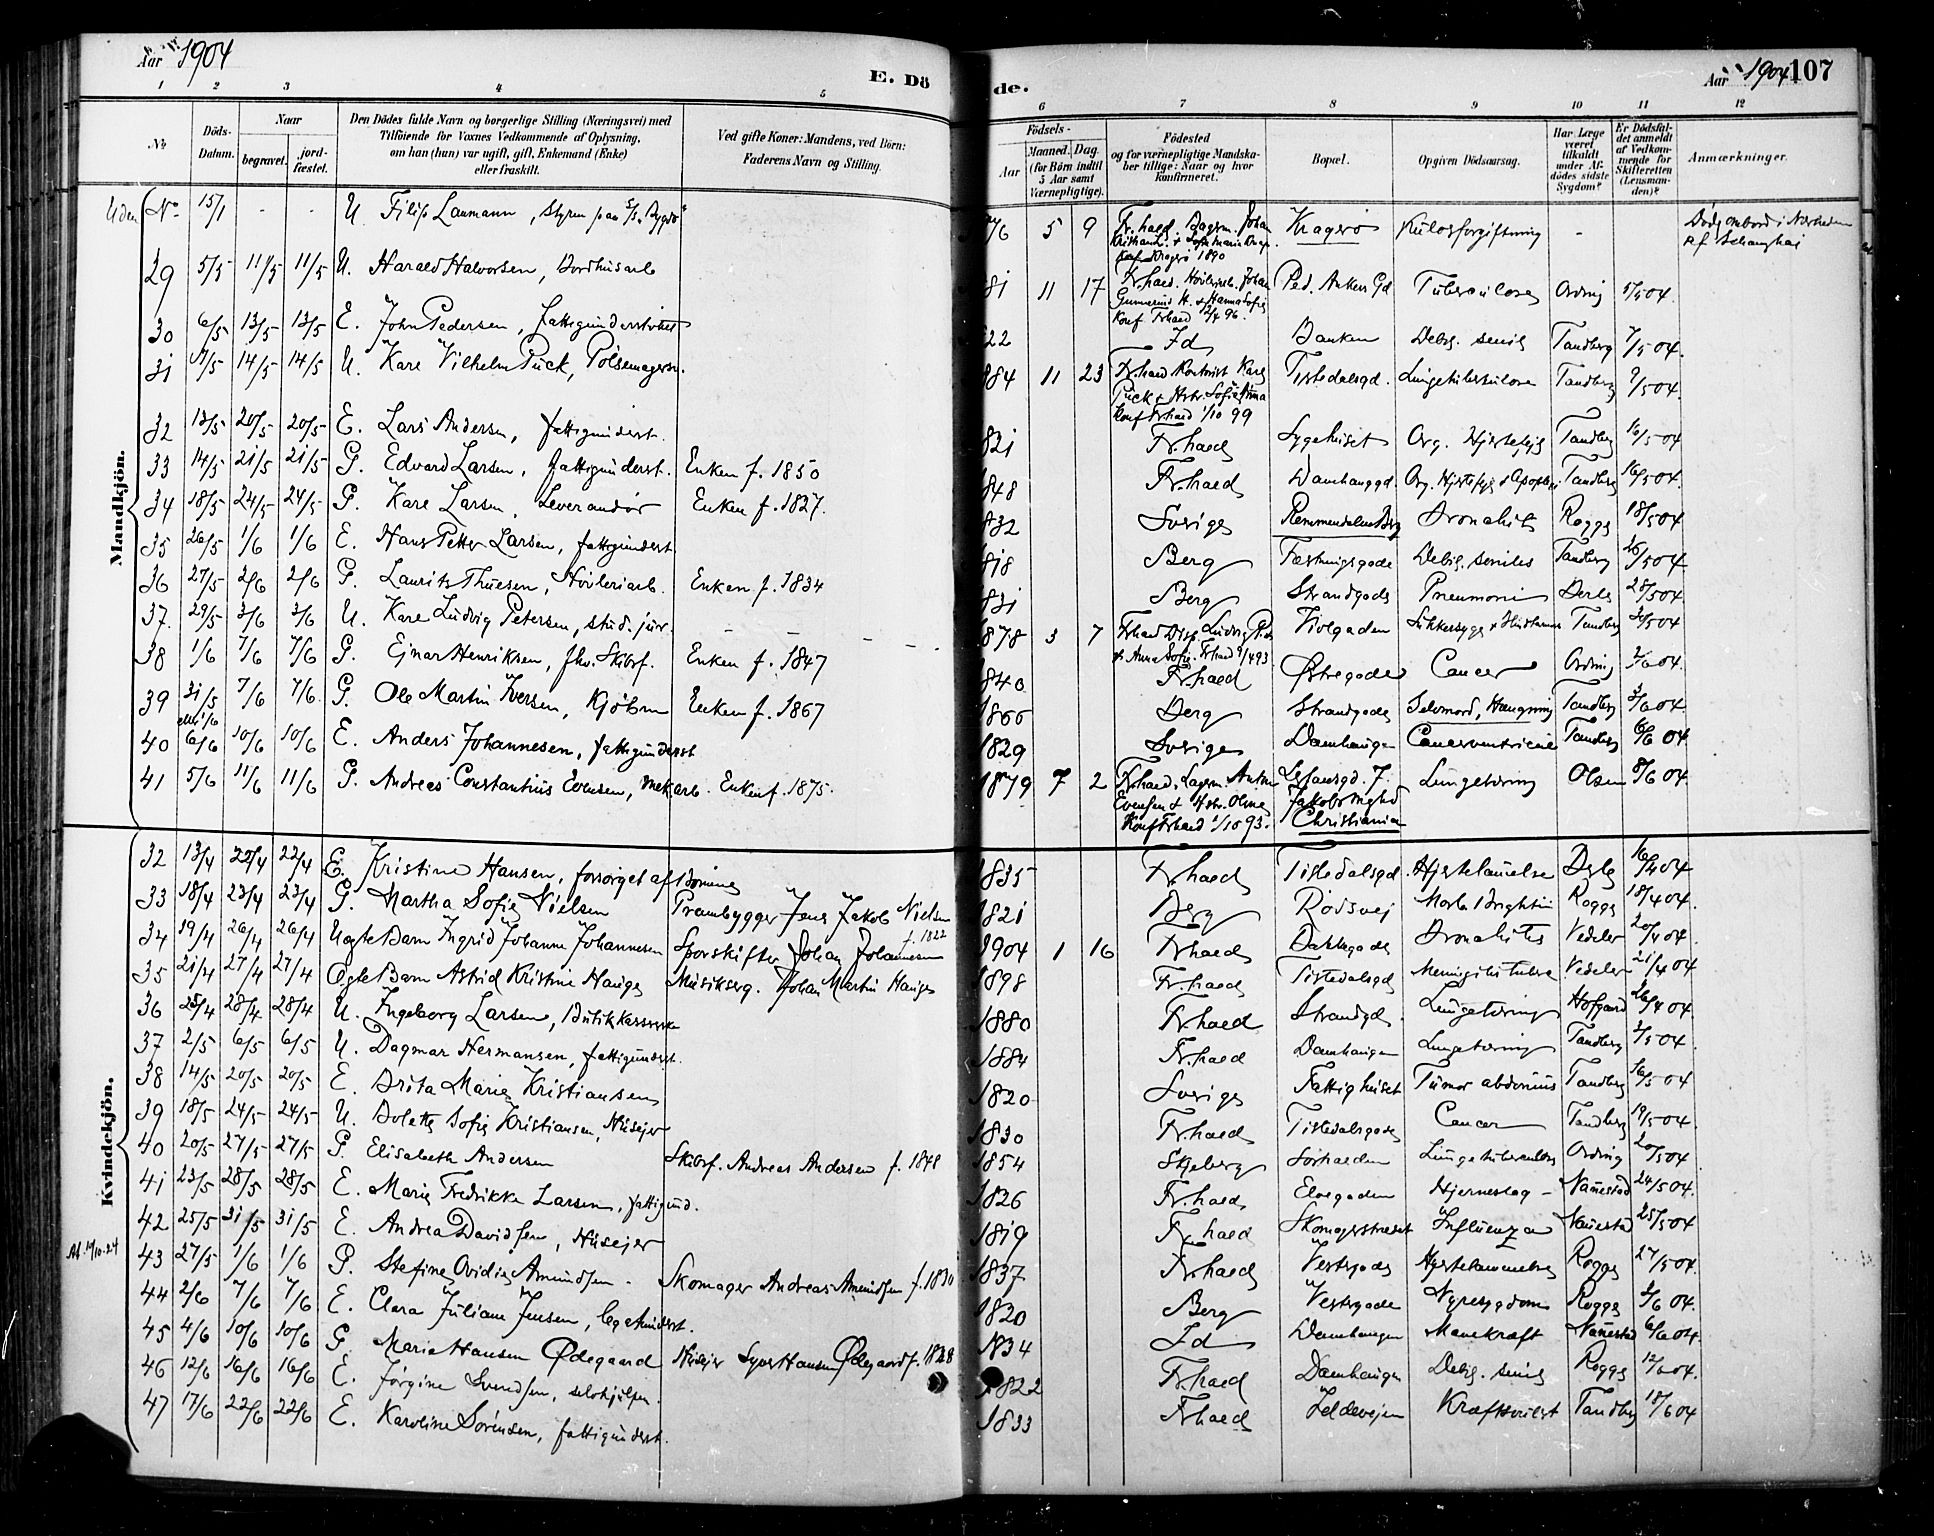 Aar 1904
E. Dö
de.
Aar 1904 107
1 2 3 4 5
6 7 8 9 10 11 12
No.
Döds-Datum.
Naar
begravet.
jord-fæstet.
Den Dödes fulde Navn og borgerlige Stilling (Næringsvei) med
Tilföiende for Voxnes Vedkommende af Oplysning,
om han (hun) var ugift, gift, Enkemand (Enke)
eller fraskilt.
Ved gifte Koner: Mandens, ved Börn:
Faderens Navn og Stilling.
Födsels-
Aar
Maaned. Dag
(for Börn indtil
5 Aar samt
Værnepligtige).
Födested
og for værnepligtige Mandska-
ber tillige: Naar og hvor
konfirmeret.
Bopæl.
Opgiven Dödsaarsag.
Har Læge
været
tilkaldt
under Af-
dödes sidste
Sygdom?
Er Dödsfal-
det anmeldt
af Vedkom-
mende for
Skifteretten
(Lensman-
den)?
Anmærkninger.
Mandkjön.
Uden No. 15/1 - - U. Filip Laumann, 5 9 Kragerø Kulosforgiftning - Død ombord i Nærheden
af Schanghai
29 5/5 11/5 11/5 U. Harald Halvorsen, 81 11 17 Ped. Ankers Gd Tuberculose Ording 5/5 04.
Konf. Frhald
30 6/5 13/5 13/5 E. John Pedersen, fattigunderstøttet 22 Id Banken Debil. senil Tandberg 7/5 04.
31 7/5 14/5 14/5 U. Karl Vilhelm Puck, Pölsemagersv. 884 11 23 Tistedalsgd. Lungetuberkulose Tandberg 9/5 04.
Konf Frhald 1/10 99
32 13/5 20/5 20/5 E. Lars Andersen, fattigunderst. 821 Fr.hald Sygehuset Org. Hjertefejl Tandberg 16/5 04
33 14/5 21/5 21/5 G. Edvard Larsen, fattigunderst. Enken f. 1850 848 Fr.hald Damhauggd. Org. Hjertesyg Tandberg 16/5 04
34 18/5 24/5 24/5 G. Karl Larsen, Leverandör Enken f. 1827. 832 Sverige Bronchit Rogge 18/5 04
35 26/5 1/6 1/6 E. Hans Petter Larsen, fattigunderst. 818 Berg Fæstningsgade Debil. senilis Tandberg 26/5 04
36 27/5 2/6 2/6 G. Laurits Thuesen, Hövleriarb. Enken f. 1834 831 Berg Strandgade Pneumoni 28/5 04
37. 29/5 3/6 3/6 U. Karl Ludvig Petersen, stud. jur. 878 3 7 Violgaden Tandberg 5 04
38 1/6 7/6 7/6 G. Ejnar Henriksen, fhv. Skibsf. Enken f. 1847 840 Fr.hald Østregade Cancer Ording 2/6 04.
39 31/5 7/6 7/6. G. Ole Martin Iversen, Kjöbm Enken f. 1867 1866 Berg Strandgade Selvmord, Hængning Tandberg 3/6 04.
40 6/6 10/6 10/6 E. Anders Johannesen, fattigunderst 1829 Sverige Damhaugen Cancer ventriculi Tandberg 6/6 04
41 5/6 11/6 11/6 G. Andreas Constantius Evensen, mek.arb. Enken f. 1875. 1879 7 2 Lungetæring Olsen 8/6 04.
Konf Frhald 1/10 93. Christiania
Kvindekjön.
32 13/4 22/4 E. Kristine Hansen, forsörget af Börnene 1835 Fr.hald Tistedalsgd. Hjertelammelse 16/4 04
33 18/4 23/4 23/4 G. Martha Sofie Nielsen Prambygger Jens Jakob Nielsen
f. 1822 1821 Berg Rödsvej Morb. Brightii Rogge 18/4 04.
34 19/4 26/4 26/4 Uægte Barn Ingrid Johanne Johannesen Sporskifter Johan Johannesen 1904 1 16 Frhald Bakkegade Bronchitis Vedeler 20/4 04
35 21/4 27/4 27/4 Ægte Barn Astrid Kristine Hauge Musikserg. Johan Martin Hauge 1898 Fr.hald Tistedalsgd Vedeler 21/4 04
36 25/4 28/4 28/4 U. Ingeborg Larsen, Butikkasserske 1880 Fr.hald Strandgd. Lungetæring Hofgaard 26/4 04.
37 2/5 6/5 6/5 U. Dagmar Hermansen, fattigunderst. 1884 Frhald Damhaugen Lungetæring Tandberg 2/5 04.
38 14/5 20/5 20/5 E. Brita Marie Kristiansen 1820 Sverige Fattighuset Tumor abdominis Tandberg 16/5 04
39 18/5 24/5 24/5 U. Bolette Sofie Kristiansen, Husejer 1830 Fr.hald Tistedalsgade Cancer Tandberg 19/5 04.
40 20/5 27/5 27/5 G. Elisabeth Andersen Skibsf. Andreas Andersen f. 1848 1854 Skjeberg Sörhalden Lungetuberculos Ording 20/5 04
41 23/5 28/5 28/5 E. Marie Fredrikke Larsen, fattigund. 1826 Fr.hald Elvegaden Hjerneslag - Nannestad 24/5 04.
42 25/5 31/5 31/5 E. Andrea Davidsen, Husejer 1819 Fr.hald Skomagerstrædet Influenza Nannestad 25/5 04
43 27/5 1/6 1/6 G. Stefine Ovidia Amundsen. Skomager Andreas Amundsen f. 1830 1837 Fr.hald Vestregade Hjertelammelse Rogge 27/5 04.
44 2/6 7/6 7/6 E. Clara Juliane Jensen, legatunderst. 1820 Berg Vestregade Nyresygdom Rogge 2/6 04.
45 4/6 10/6 10/6 G. Marie Hansen Ødegaard Husejer Syver Hansen Ødegaard f. 1828 1834 Id Damhaugen Mavekræft Nannestad 6/6 04
46 12/6 16/6 16/6 E. Jörgine Svendsen, selvhjulpen. 1822 Fr.hald Damhaugen Debil. senil Rogge 12/6 04.
47 17/6 22/6 22/6 E. Karoline Sörensen, fattigunderst. 1833 Frhald Kræftsvulst Tandberg 18/6 04